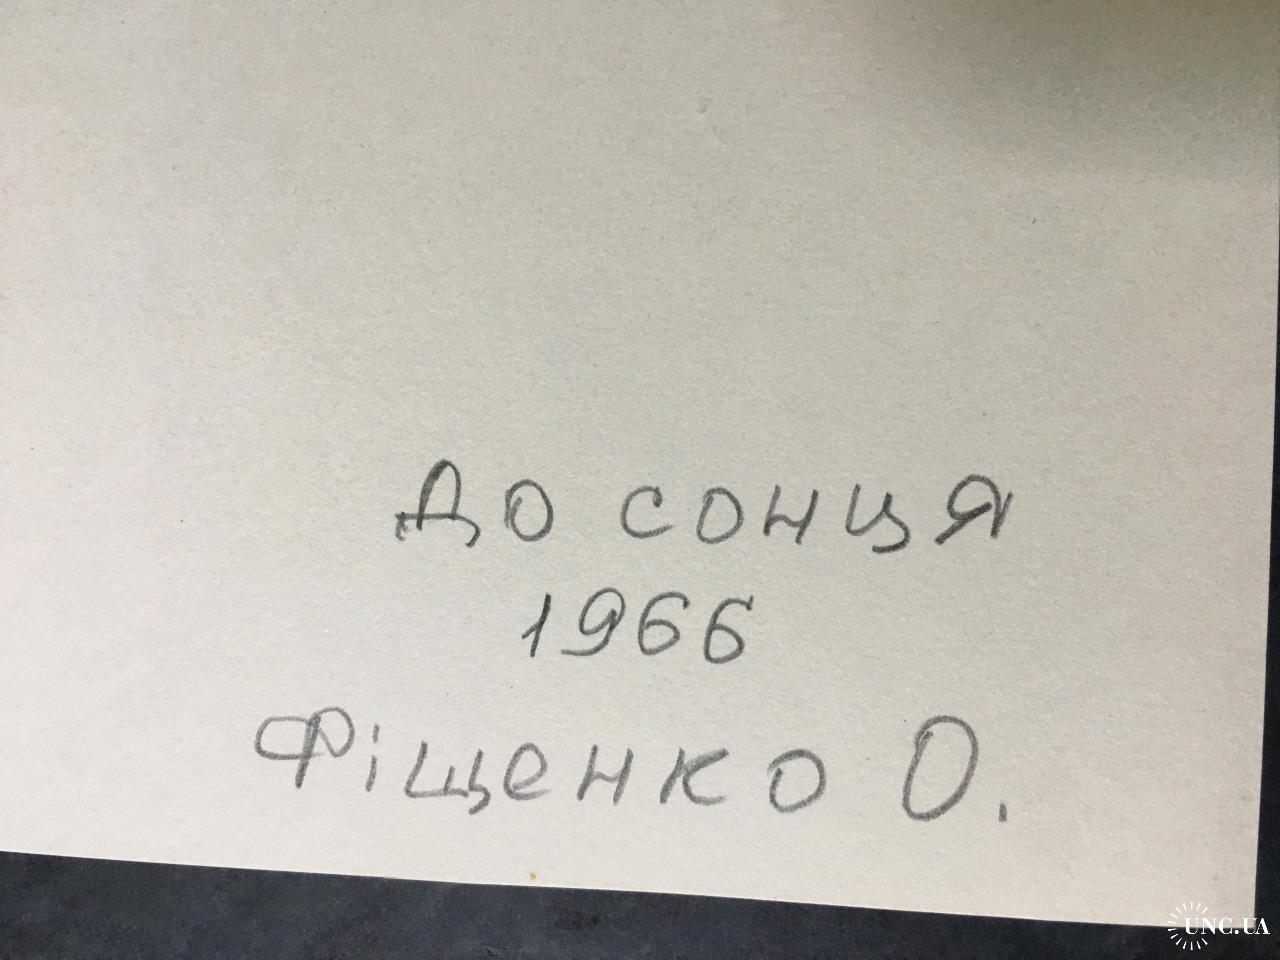 До сонця
1966
Фіщенко О.
UNC.UA